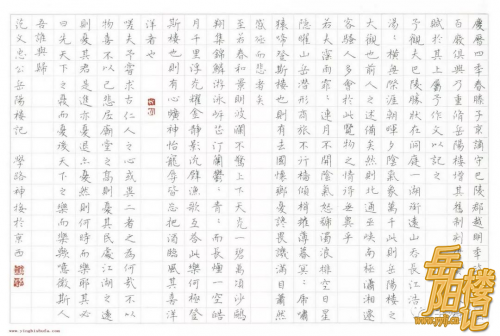 慶曆四季春滕子京謫守巴陵郡越明季
百廢俱興乃重脩岳陽樓增其舊制刻
賦於其上屬予作文以記之
予觀夫巴陵勝狀在洞庭一湖銜遠山吞長江浩
湯湯橫無際涯朝暉夕陰氣象萬千此則岳陽樓之
大觀也前人之述備矣然則北通巫峽南極瀟湘遷
客騷人多會於此覽物之情得無異乎
若夫霪雨霏霏連月不開陰風怒號濁浪排空日星
隱曜山岳潛形商旅不行檣傾楫摧薄暮冥冥虎嘯
猿啼登斯樓也則有去國懷鄉憂讒畏譏滿目蕭然
感極而悲者矣
至若春和景明波瀾不驚上下天光一碧萬頃沙鷗
翔集錦鱗游泳岸芷汀蘭鬱鬱青青而或長煙一空皓
月千里浮光耀金靜影沉璧漁歌互答此樂何極登
斯樓也則有心曠神怡寵辱皆忘把酒臨風其喜洋
洋者也
嗟夫予嘗求古仁人之心或異二者之為何哉不以
物喜不以己悲居廟堂之高則憂其民處江湖之遠
則憂其君是進亦憂退亦憂然則何時而樂耶其必
曰先天下之憂而憂後天下之樂而樂歟噫微斯人
吾誰與歸
范文忠公岳陽樓記 學路神接於京西
岳阳楼记
www.yingbishufa.com